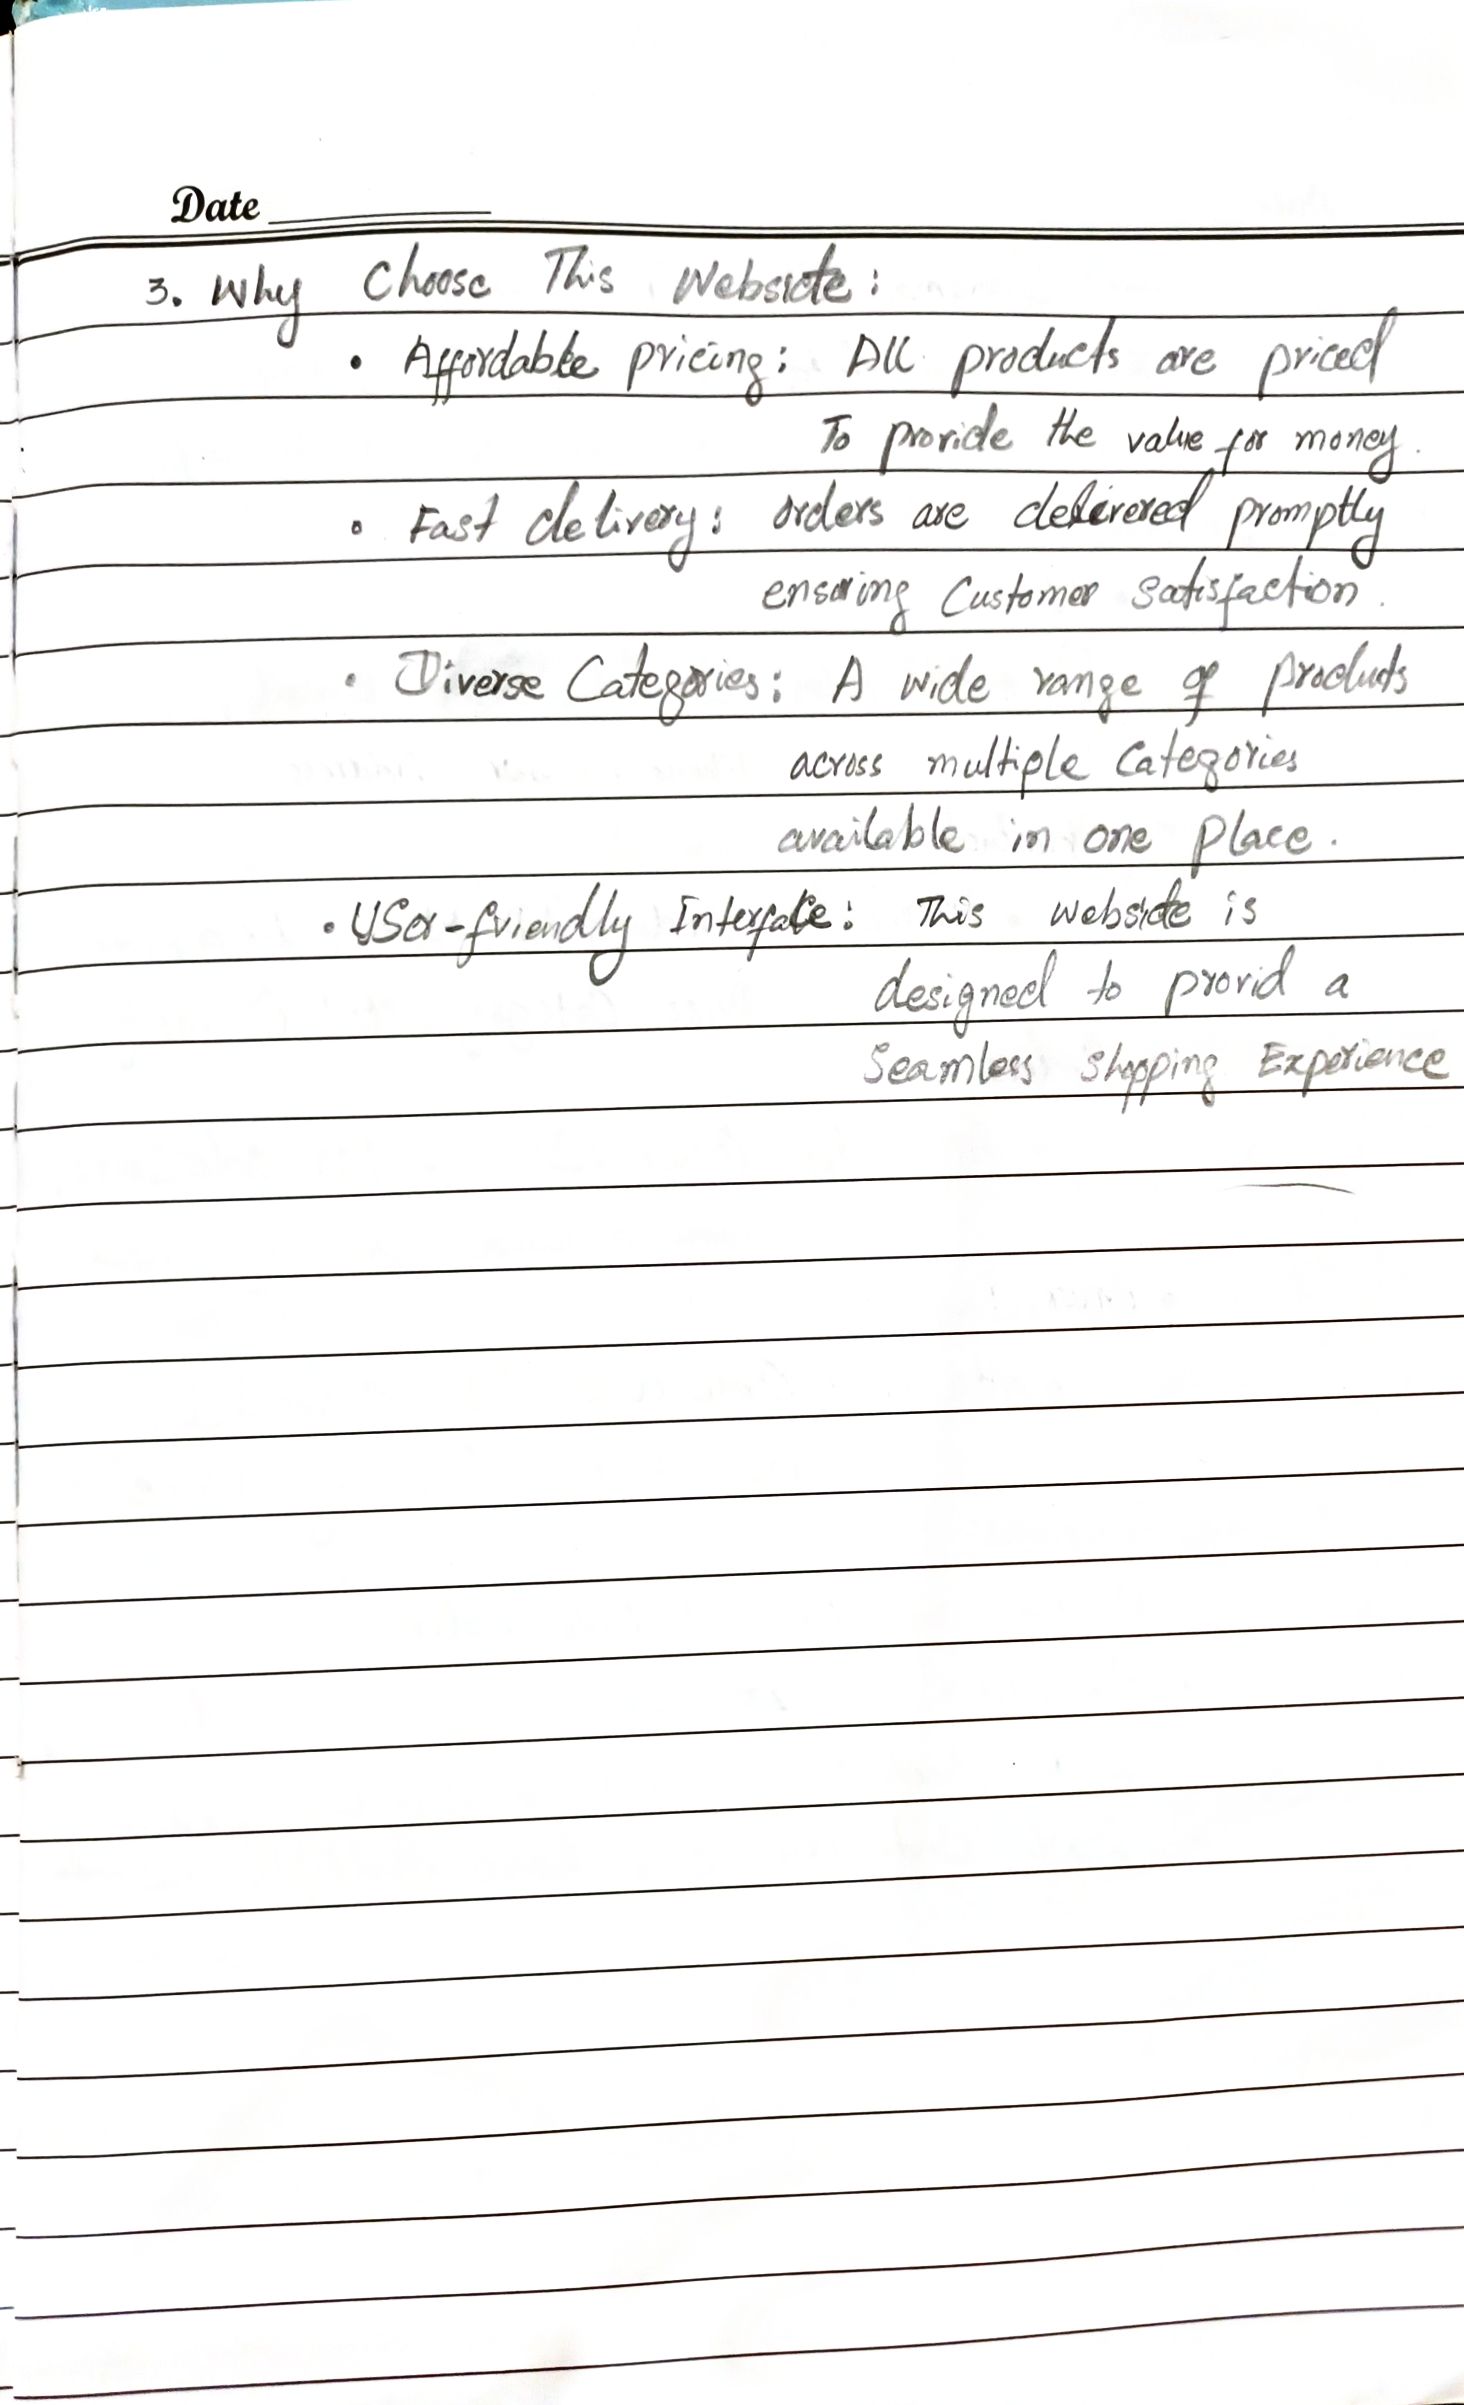 Date
3. Why Choose This Website:
• Affordable pricing: All products are priced
To provide the value for money.
• Fast delivery: orders are delivered promptly
ensuring Customer Satisfaction.
• Diverse Categories: A wide range of products
across multiple Categories
available in one place.
• User-friendly Interface: This website is
designed to provid a
Seamless shopping Experience